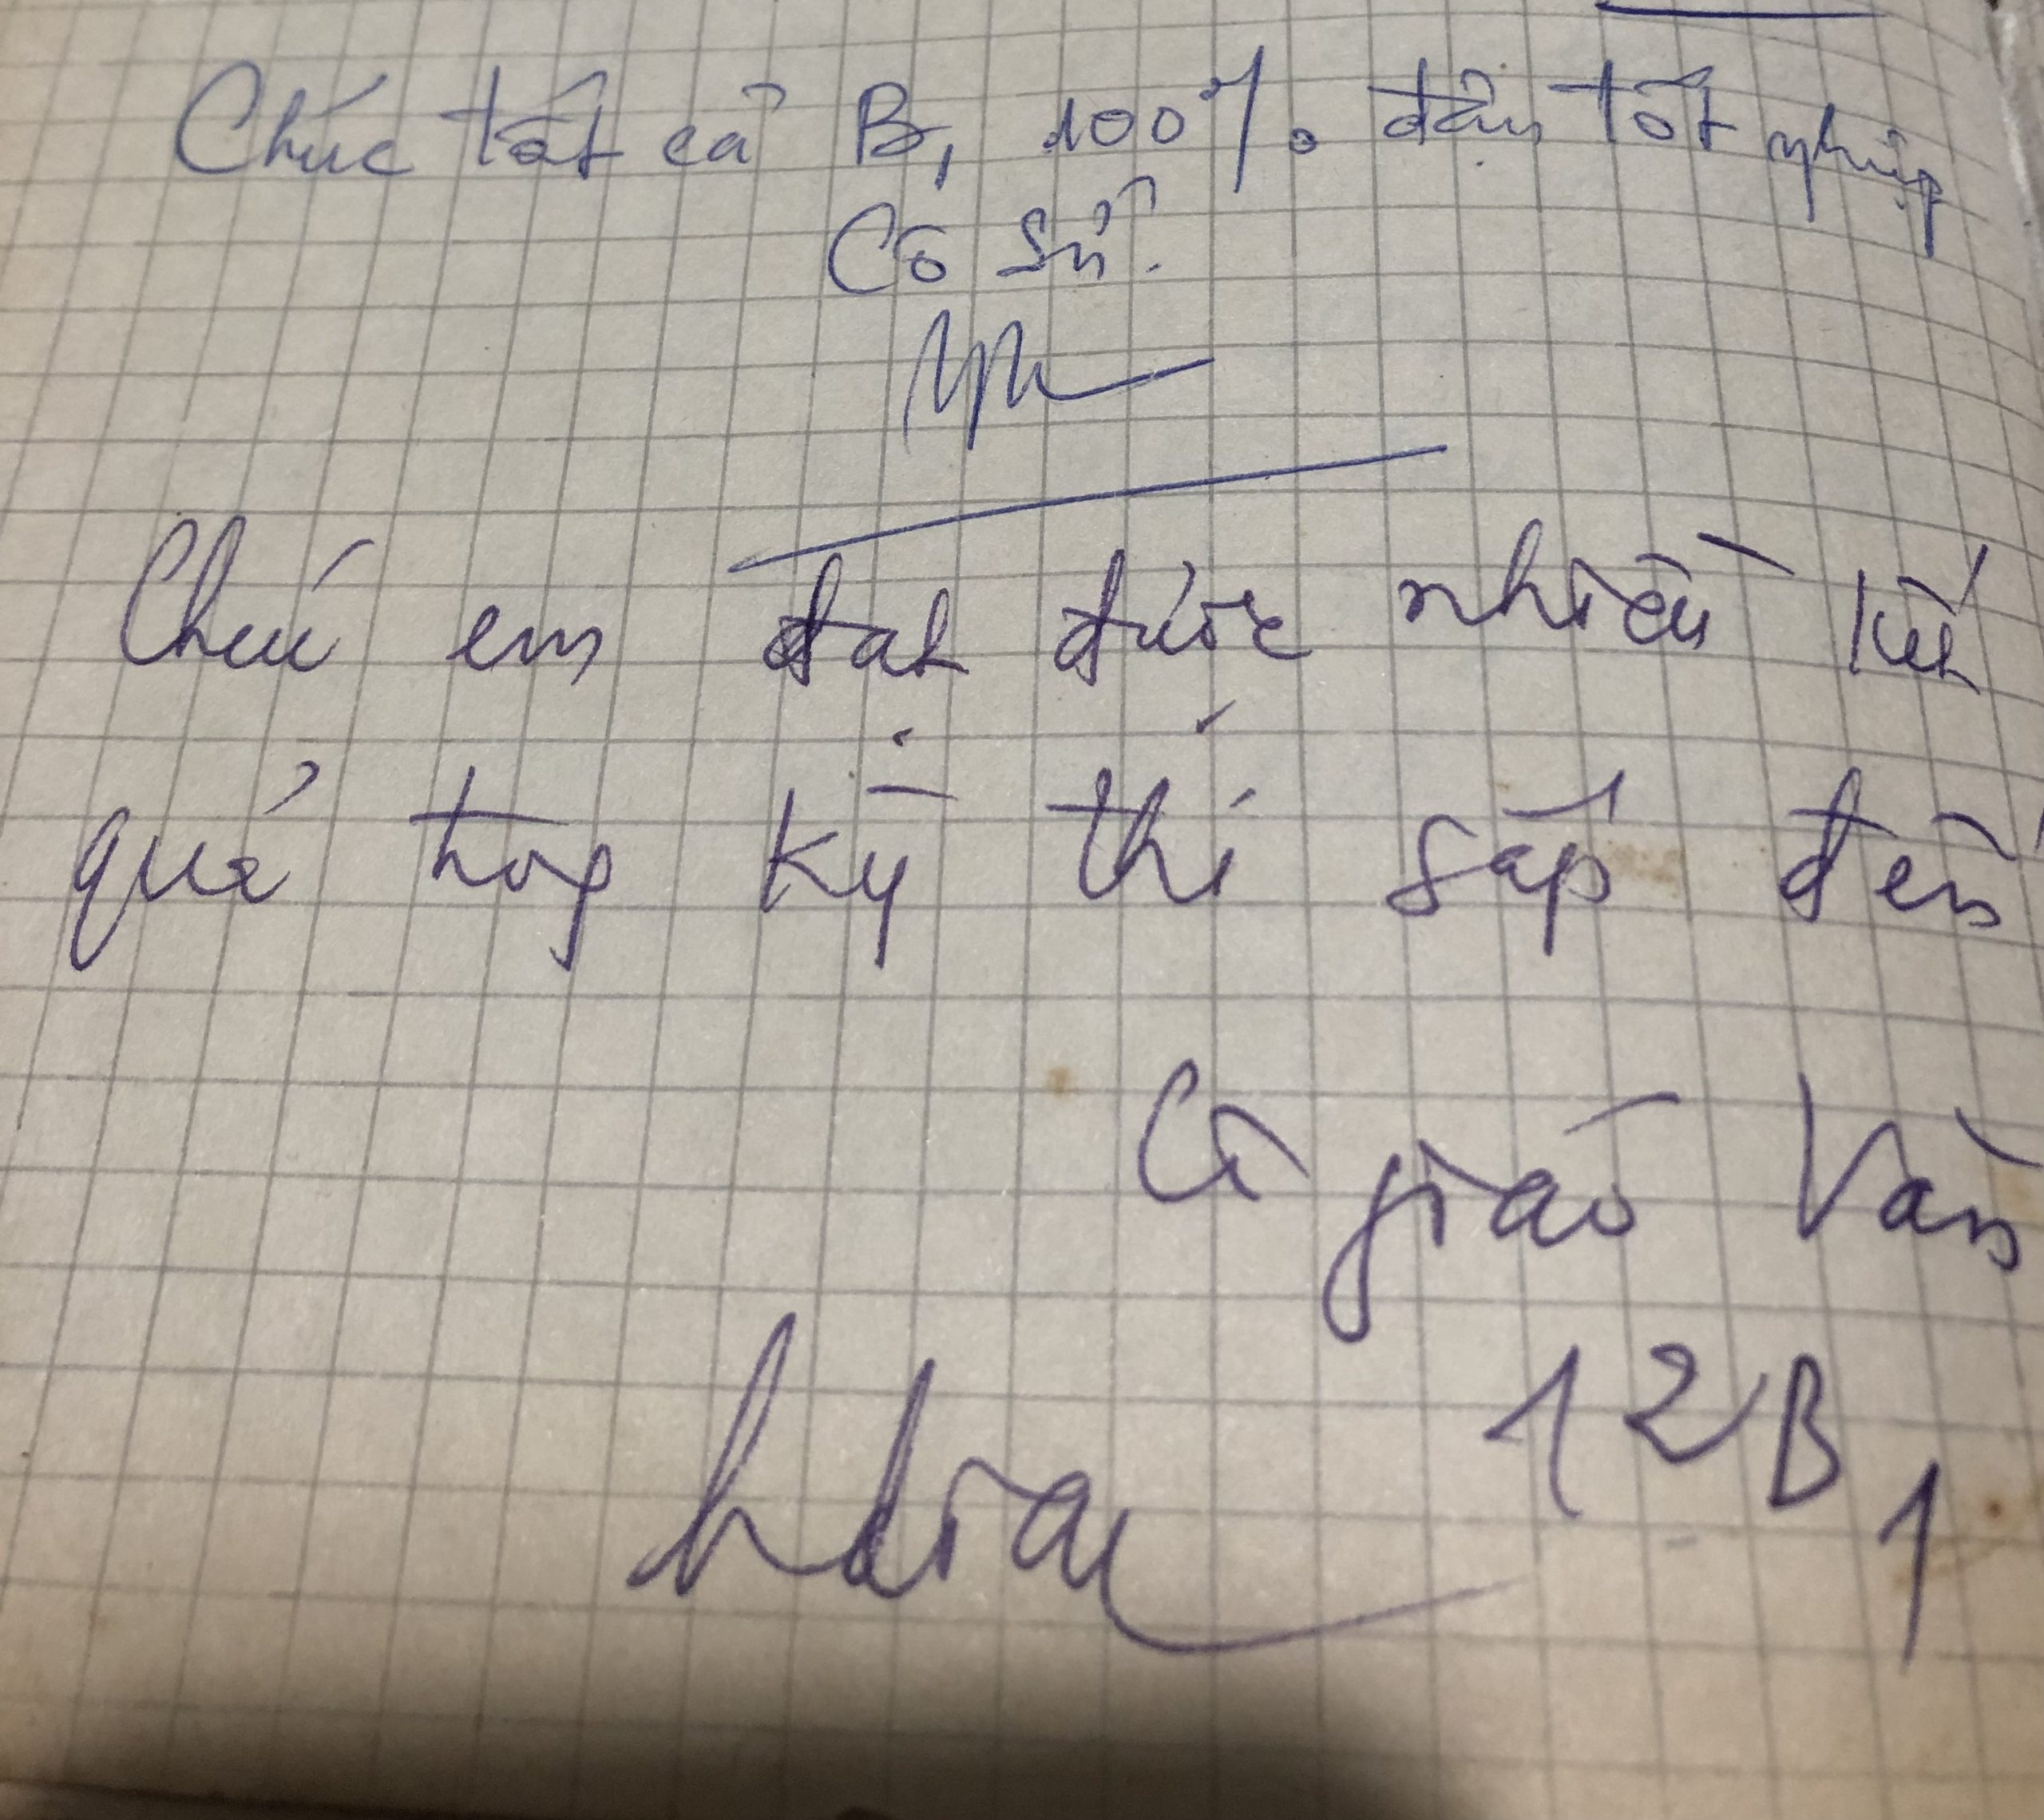 Chúc tất cả B1 100% đậu tốt nghiệp
Cô Sử.
Chúc em đạt được nhiều kết
quả trong kỳ thi sắp đến
Cô giáo Văn
12B1